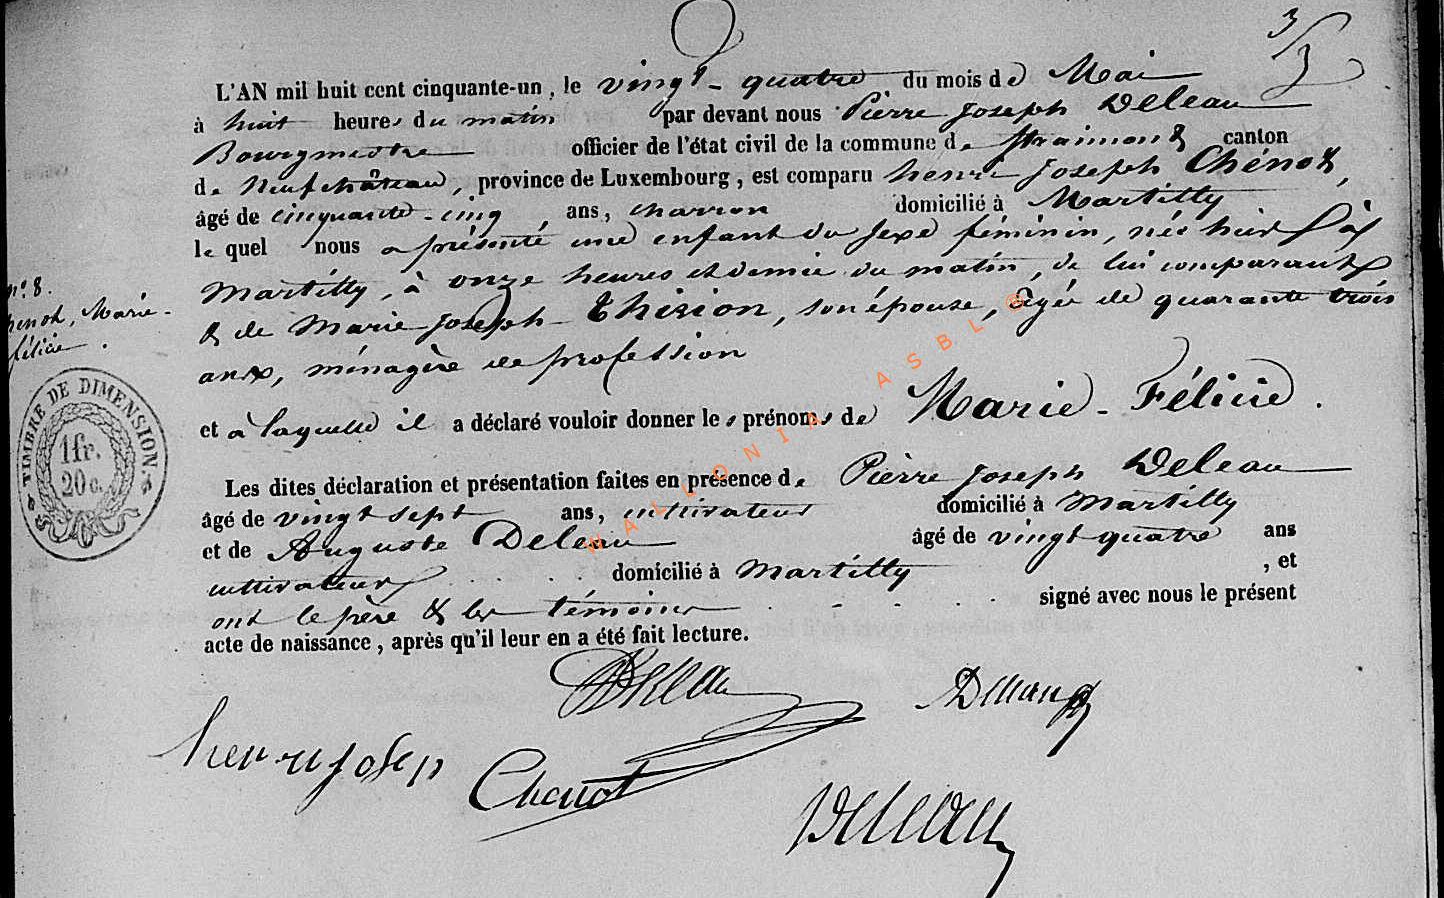 3/3
L'AN mil huit cent cinquante-un, le vingt-quatre du mois de Mai
à huit heures du matin par devant nous Pierre Joseph Deleau
Bourgmestre officier de l'état civil de la commune de Straimont canton
de Neufchâteau, province de Luxembourg, est comparu henri Joseph Chénot,
âgé de cinquante-cinq, ans, charron domicilié à Martilly
le quel nous a présenté une enfant du sexe féminin, née hier à
Martilly, à onze heures et demie du matin, de lui comparant
& de Marie Joseph Thirion, son épouse, âgée de quarante trois
ans, ménagère de profession
n° 8.
henot, Marie-
félicie.
et à laquelle il a déclaré vouloir donner les prénoms de Marie-Félicie.
TIMBRE DE DIMENSION.
1fr.
20c.
Les dites déclaration et présentation faites en présence de Pierre Joseph Deleau
âgé de vingt sept ans, cultivateur domicilié à Martilly
et de Auguste Deleau âgé de vingt quatre ans
cultivateur domicilié à Martilly, et
ont le père & les témoins signé avec nous le présent
acte de naissance, après qu'il leur en a été fait lecture.
Deleau
henry Josep Chenot
Deleau
WALLONIA ASBL ©